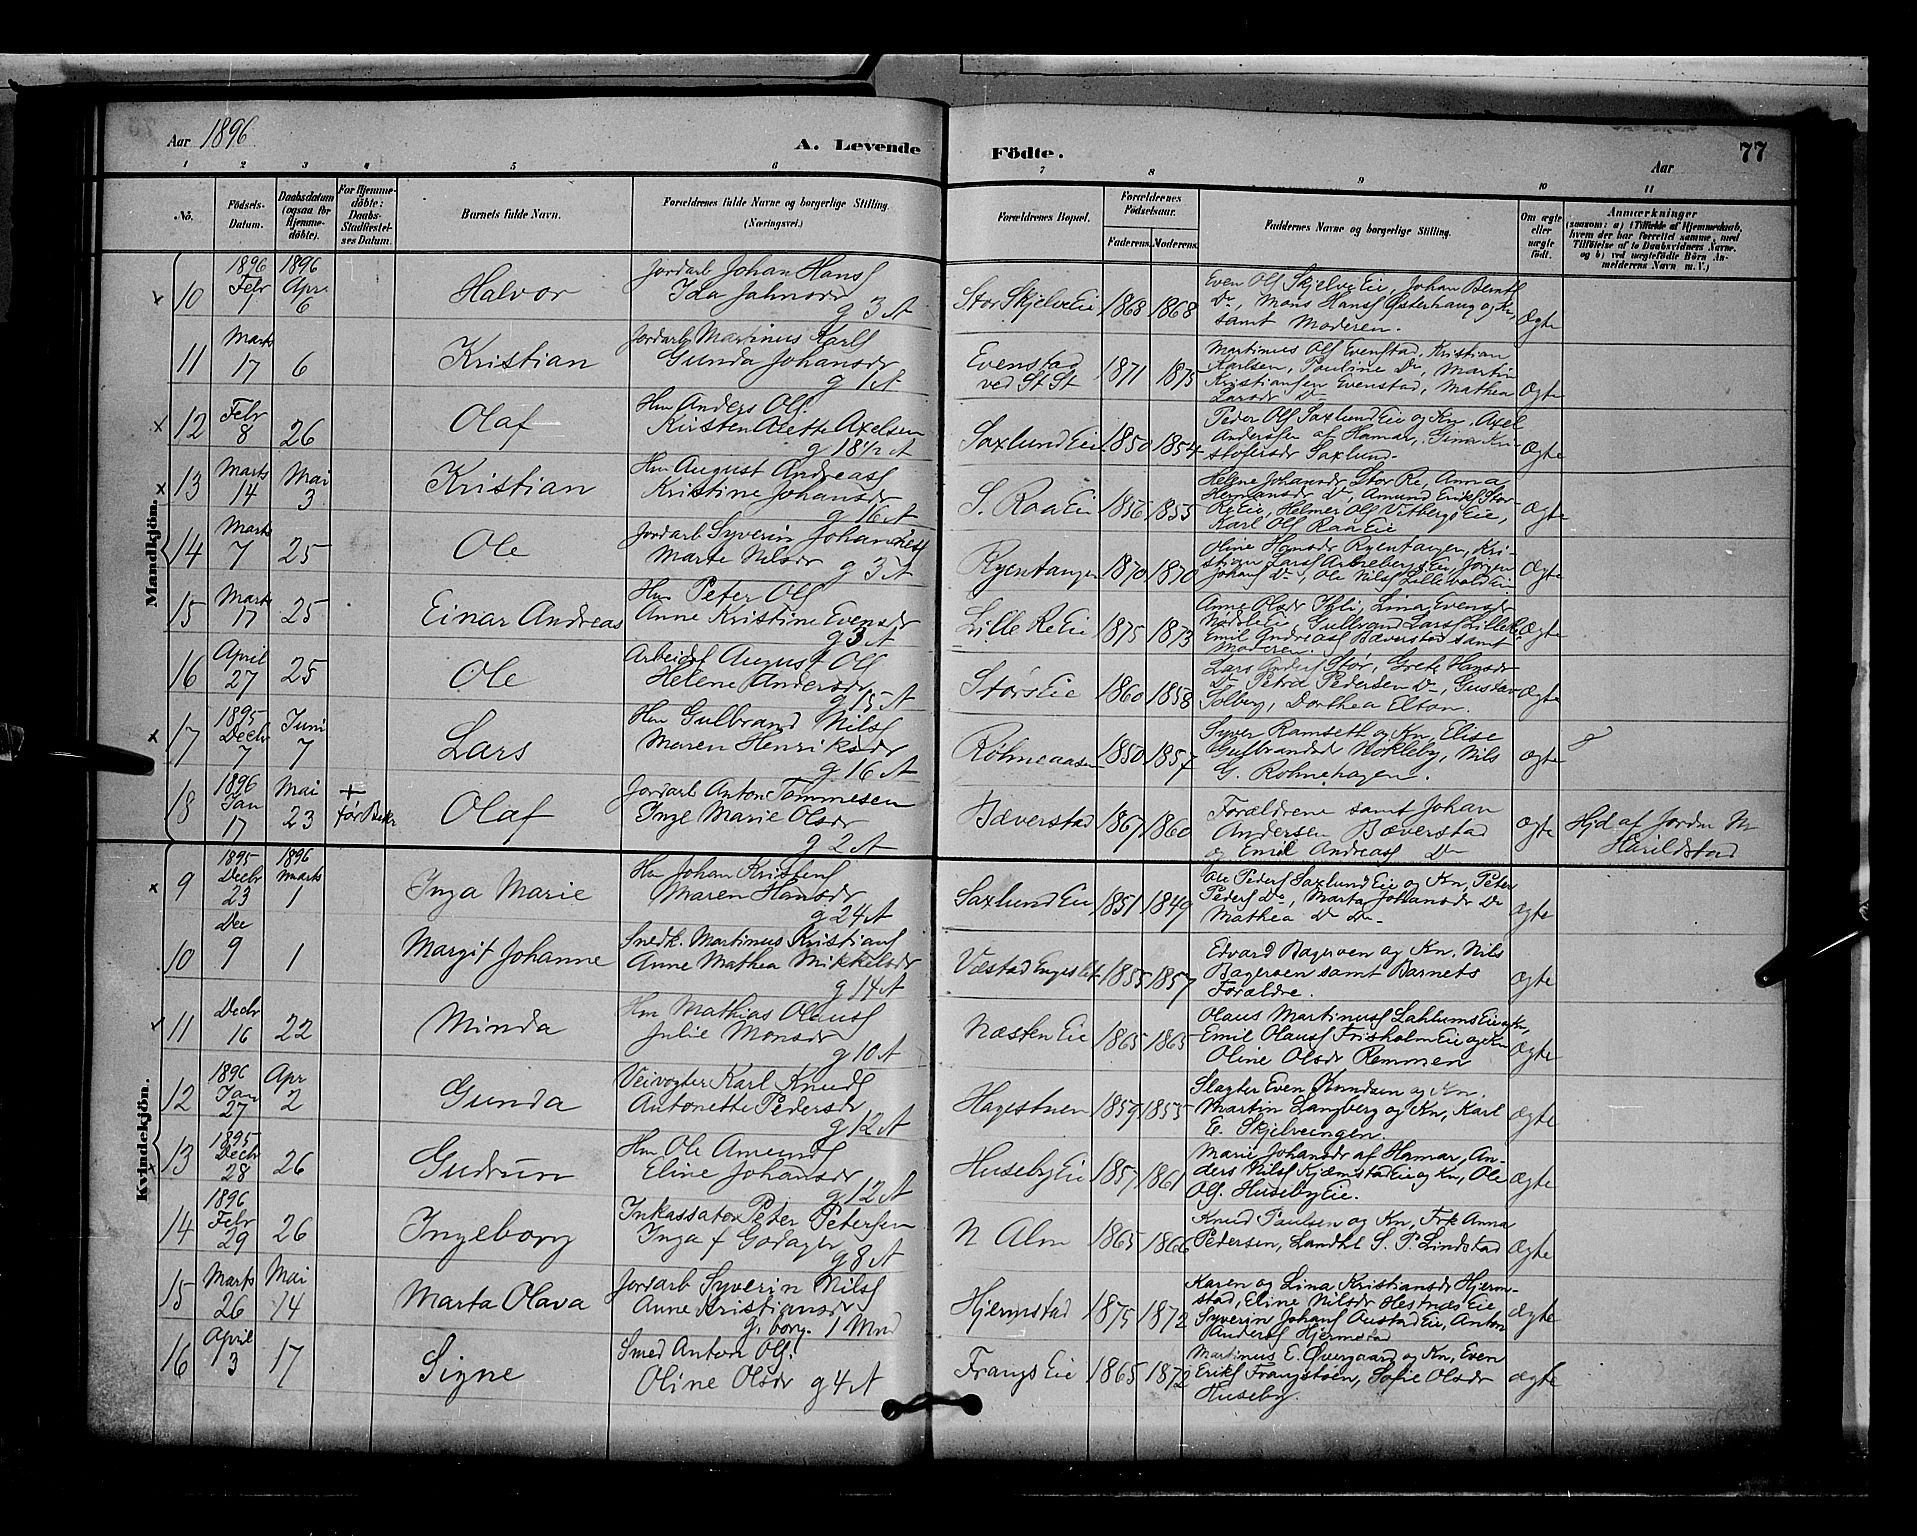 Aar 1896
A. Levende Födte.
Aar
77
1 2 3 4 5 6 7 8 9 10 11
Nö.
Födsels-Datum.
Daabsdatum (ogsaa for Hjemmedöbte).
For Hjemmedöbte: Daabs-Stadfæstelses Datum.
Barnets fulde Navn.
Forældrenes fulde Navne og borgerlige Stilling. (Næringsvei.)
Forældrenes Bopæl.
Forældrenes Födselsaar.
Faderens. Moderens.
Faddernes Navne og borgerlige Stilling.
Om ægte eller uægte födt.
Anmærkninger
(saasom: a) i Tilfælde af Hjemmedaab, hvem der har forrettet samme, med Tilföielse af to Daabsvidners Navne, og b) ved uægtefödte Börn Anmelderens Navn m. V.)
Mandkjön.
10 1896 Febr 7 1896 Apr. 6 Halvor
Jordarb Johan Hansf
Ida Jahnsdr
g 3 A
Stor Skjelve Eie 1868 1868
Even Olf Skjelve Eie, Johan Berntf
Do, Mons Hansf Østerhaug og Kn,
samt Moderen.
Ægte
11 Marts 17 6 Kristian
Jordarb Martinus Karlf
Gunda Johansdr
g 1 A
Evenstad
ved St St
1871 1875
Martinus Olf Evenstad, Kristian
Karlsen, Pauline Do, Martin
Kristiansen Evenstad, Mathea
Larsdr Do
Ægte
12 Febr 8 26 Olaf
Hm Anders Olf.
Kirsten Alette Axelsen
g 18 1/2 A
Saxlund Eie 1850 1854
Peder Olf Saxlund Eie og Kn, Axel
Andersen af Hamar, Gina Kri-
stofersdr Saxlund.
Ægte
13 Marts 14 Mai 3 Kristian
Hm August Andreasf
Kristine Johansdr
g 16 A
S. Raa Eie 1856 1855
Helene Johansdr Stor Re, Anna
Hermansdr Do, Amund Eriksf Stor
Re Eie, Helmer Olf Vitberg Eie,
Karl Olf Raa Eie
Ægte
14 Marts 7 25 Ole
Jordarb Syverin Johannesf
Marte Nilsdr
g 3 A
Ryentangen 1870 1870
Oline Hansdr Ryentangen, Kri-
stian Larsf Eie, Jörgen
Johansf Do, Ole Nilsf Lillevold Eie
Ægte
15 Marts 17 25 Einar Andreas
Hm Peter Olf
Anne Kristine Evensdr
g 3 A
Lille Re Eie 1875 1873
Anne Olsdr, Lina Evensdr
Eie, Gulbrand Larsf Lille Re
Emil Andreasf Bæverstad samt
Moderen.
Ægte
16 April 27 25 Ole
Arbeidsf August Olf
Helene Andersdr
g 15 A
Störs Eie 1860 1858
Lars Andersf Stör, Grete Hansdr
Do Petra Pedersen Do, Gustav
Solberg, Dorthea Elton.
Ægte
17 1895 Decbr 7 Juni 7 Lars
Hm Gulbrand Nilsf
Maren Henriksdr
g 16 A
Röhneaasen 1850 1857
Syver Ramseth og Kn, Elise
Gulbrandsdr Mokleby, Nils
G. Rohnehagen.
ægte
18 1896 Jan 17 Mai 23 + Olaf
Jordarb Anton Tommesen
Inge Marie Olsdr
g 2 A
Bæverstad 1867 1860
Forældrene samt Johan
Andersen Bæverstad
og Emil Andreasf Do
ægte
Hjd af Jordm M
Harildstad
Kvindekjön.
9 1895 Decbr 23 1896 Marts 1 Inga Marie
Hm Johan Kristenf
Maren Hansdr
g 24 A
Saxlund Eie 1851 1849
Ole Pedersf Saxlund Eie og Kn, Peter
Pedersf Do, Marta Johansdr Do
Mathea Do Do
ægte
10 Dec 9 1 Margit Johanne
Snedk. Martinus Kristianf
Anne Mathea Mikkelsdr
g 14 A
Væstad Engeslet 1855 1857
Edvard Bageroen og Kn, Nils
Bageroen samt Barnets
Forældre.
ægte
11 Decbr 16 22 Minda
Hm Mathias Olausf
Julie Monsdr
g 10 A
Næsten Eie 1865 1865
Olaus Martinusf Lahlums Eie og Kn,
Emil Olausf Frisholm Eie og Kn
Oline Olsdr Remmen
Ægte
12 1896 Jan 27 Apr 2 Gunda
Veivogter Karl Knudf
Antonette Pedersdr
g 12 A
Hagestuen 1859 1855
Slagter Even Knudsen og Kn.
Martin Langberg og Kn, Karl
E. Skjelveengen.
ægte
13 1895 Decbr 28 26 Gudrun
Hm Ole Amundf
Eline Johansdr
g 12 A
Huseby Eie 1857 1861
Marie Johansdr af Hamar, An-
ders Nilsf Kjæmstad Eie og Kn, Ole
Olf. Huseby Eie.
ægte
14 1896 Febr 29 26 Ingeborg
Inkassator Peter Petersen
Inga f Godager
g 8 A
N Alm 1865 1866
Knud Paulsen og Kn, Frk Anna
Pedersen, Landhl S. P. Lindstad
Ægte
15 Marts 26 Mai 14 Marta Olava
Jordarb Syverin Nilsf
Anne Kristiansdr
g. borg. 1 Mnd
Hjermstad 1875 1872
Karen og Lina Kristiansdr Hjerm-
stad, Eline Nilsdr Hestnæs Eie
Syverin Johansf Austad Eie, Anton
Andersf Hjermstad
ægte
16 April 3 17 Signe
Smed Anton Olf.
Oline Olsdr g 4 A
Frangs Eie 1865 1872
Martinus E. Övergaard og Kn, Even
Eriksf Frangstöen, Sofie Olsdr
Huseby.
ægte